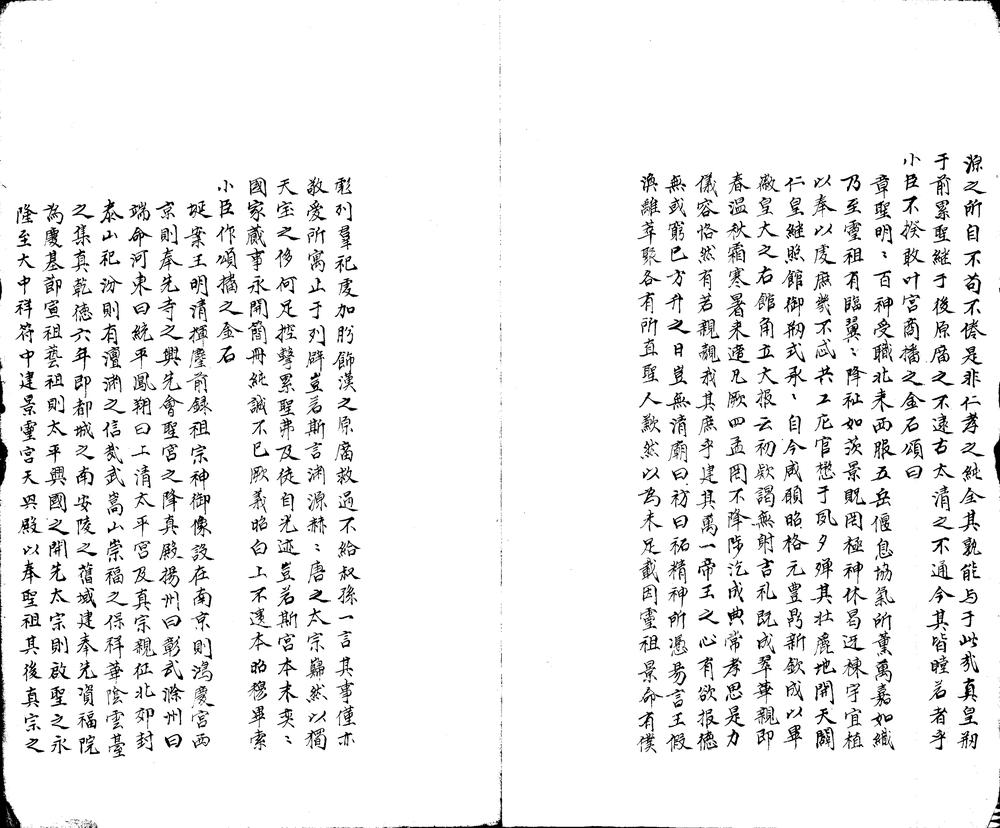 源之所自不苟不倦是非仁孝之純全其孰能与于此哉真皇刱
于前累聖継于後原庙之不遠古太清之不通今其皆瞠若者乎
小臣不揆敢叶宫商播之金石頌曰
章聖明〻百神受職北耒西服五岳偃息協氣所薫萬嘉如織
乃至霊祖有臨翼〻降祉如茨景貺罔極神休曷迓棟宇宜植
以奉以虔庶幾不忒共工庀官懋于夙夕殫其壮麗地開天闢
仁皇継照館御刱式承〻自今咸願昭格元豊鼎新欽成以畢
徽皇大之右館角立大报云初欵謁無射吉礼既成翠華親即
春温秋霜寒暑耒遒凡厥四孟罔不降陟汔成典常孝思是力
儀容恪然有若親覿我其庶乎建其萬一帝王之心有欲报德
無或窮已方升之日豈無清廟曰礿曰祏精神所憑易言王假
渙離萃聚各有所直聖人歉然以為未足載因霊祖景命有僕
彫列羣祀虔加肸飾漢之原庙救過不給叔孫一言其事僅亦
敬爱所寓止于列辟豈若斯言渊源赫〻唐之太宗巋然以獨
天宝之侈何足控摶累聖弗及徒自光迹豈若斯宫本末奕〻
國家蕆事永開簡冊純誠不已厥義昭白上不遠本昭穆畢索
小臣作頌播之金石
埏案王明清揮麈前録祖宗神御像設在南京則鴻慶宫西
京則奉先寺之興先會聖宫之降真殿揚州曰彰武滁州曰
端命河東曰統平鳳翔曰上清太平宫及真宗親征北郊封
泰山祀汾則有澶渊之信武武嵩山崇福之保祥華陰雲䑓
之集真乾德六年即都城之南安陵之舊域建奉先資福院
為慶基節宣祖藝祖則太平興國之開先太宗則啟聖之永
隆至大中祥符中建景霊宫天興殿以奉聖祖其後真宗之